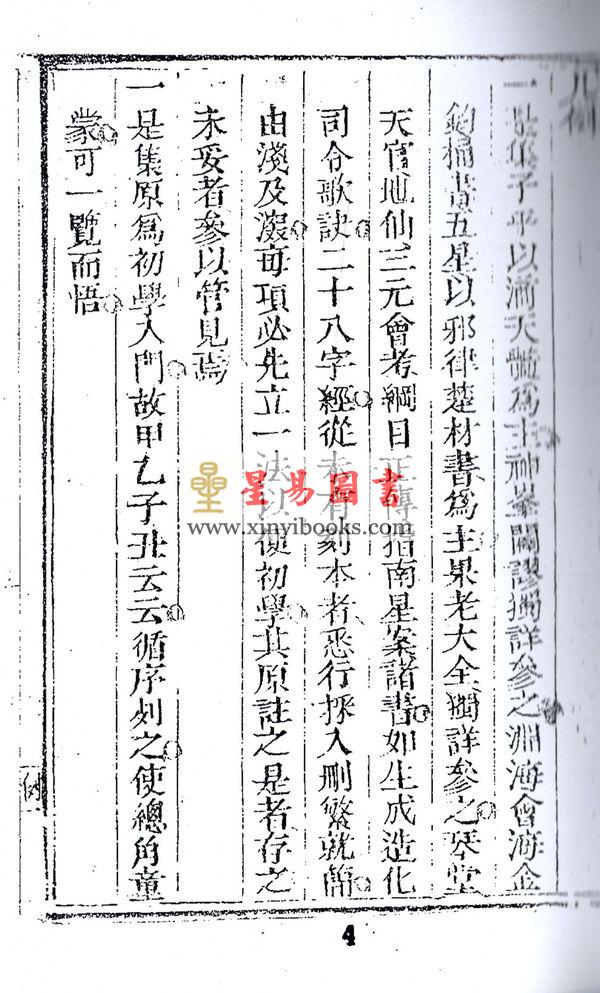 凡例
一是集子平以滴天髓爲主神峯闢謬獨詳參之淵海會海金
鈎補書五星以耶律楚材書爲主果老大全獨詳參之琴堂
天官地仙三元會考綱目正傳指南星案諸書如生成造化
司令歌訣二十八字經從未有刻本者悉行採入刪繁就簡
由淺及深每項必先立一法以便初學其原註之是者存之
未妥者參以管見焉
一是集原爲初學入門故甲乙子丑云云循序列之使總角童
蒙可一覽而悟
例
星易圖書
www.xinyibooks.com
4